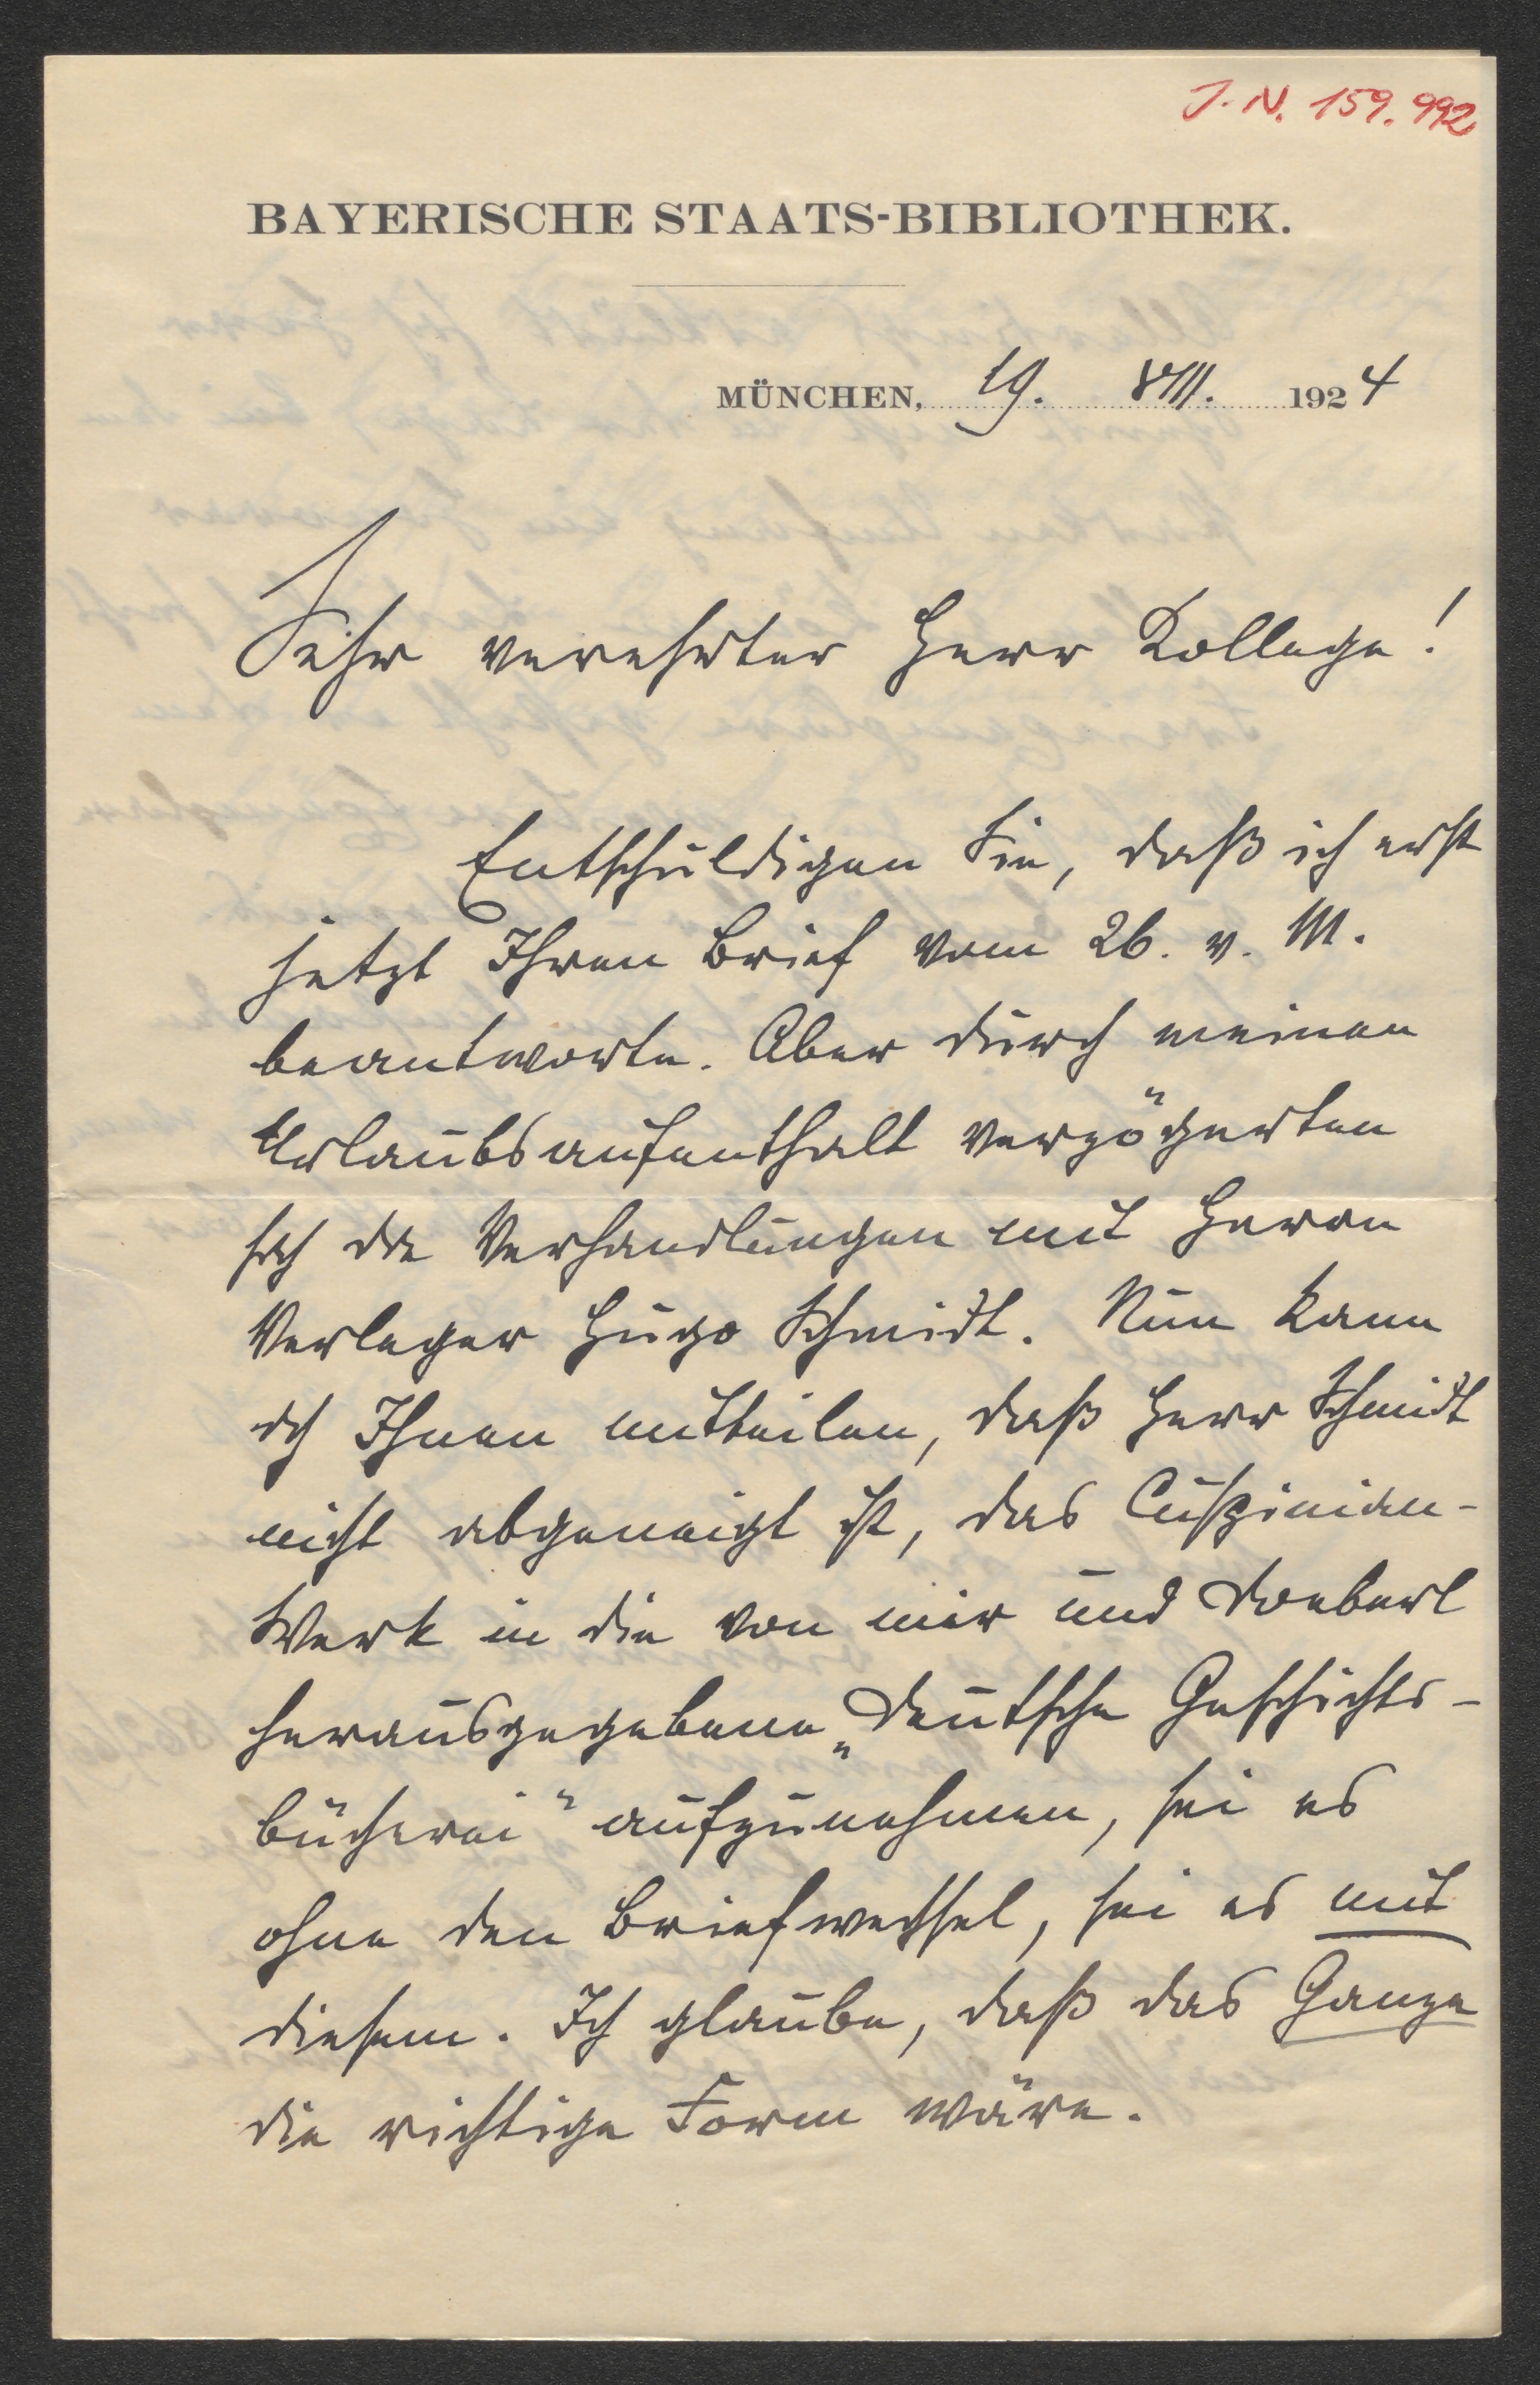 J. N. 159.992
BAYERISCHE STAATS-BIBLIOTHEK.
MÜNCHEN, 19. VIII. 1924
Sehr verehrter Herr Kollege!
Entschuldigen Sie, daß ich erst
jetzt Ihren Brief vom 26. v. M.
beantworte. Aber durch meinen
Urlaubsaufenthalt verzögerten
sich die Verhandlungen mit Herrn
Verleger Hugo Schmidt. Nun kann
ich Ihnen mitteilen, daß Herr Schmidt
nicht abgeneigt ist, das Cuspinian-
Werk in die von mir und Doeberl
herausgegebene „Deutsche Geschichts-
bücherei“ aufzunehmen, sei es
ohne den Briefwechsel, sei es mit
diesem. Ich glaube, daß das Ganze
die richtige Form wäre.